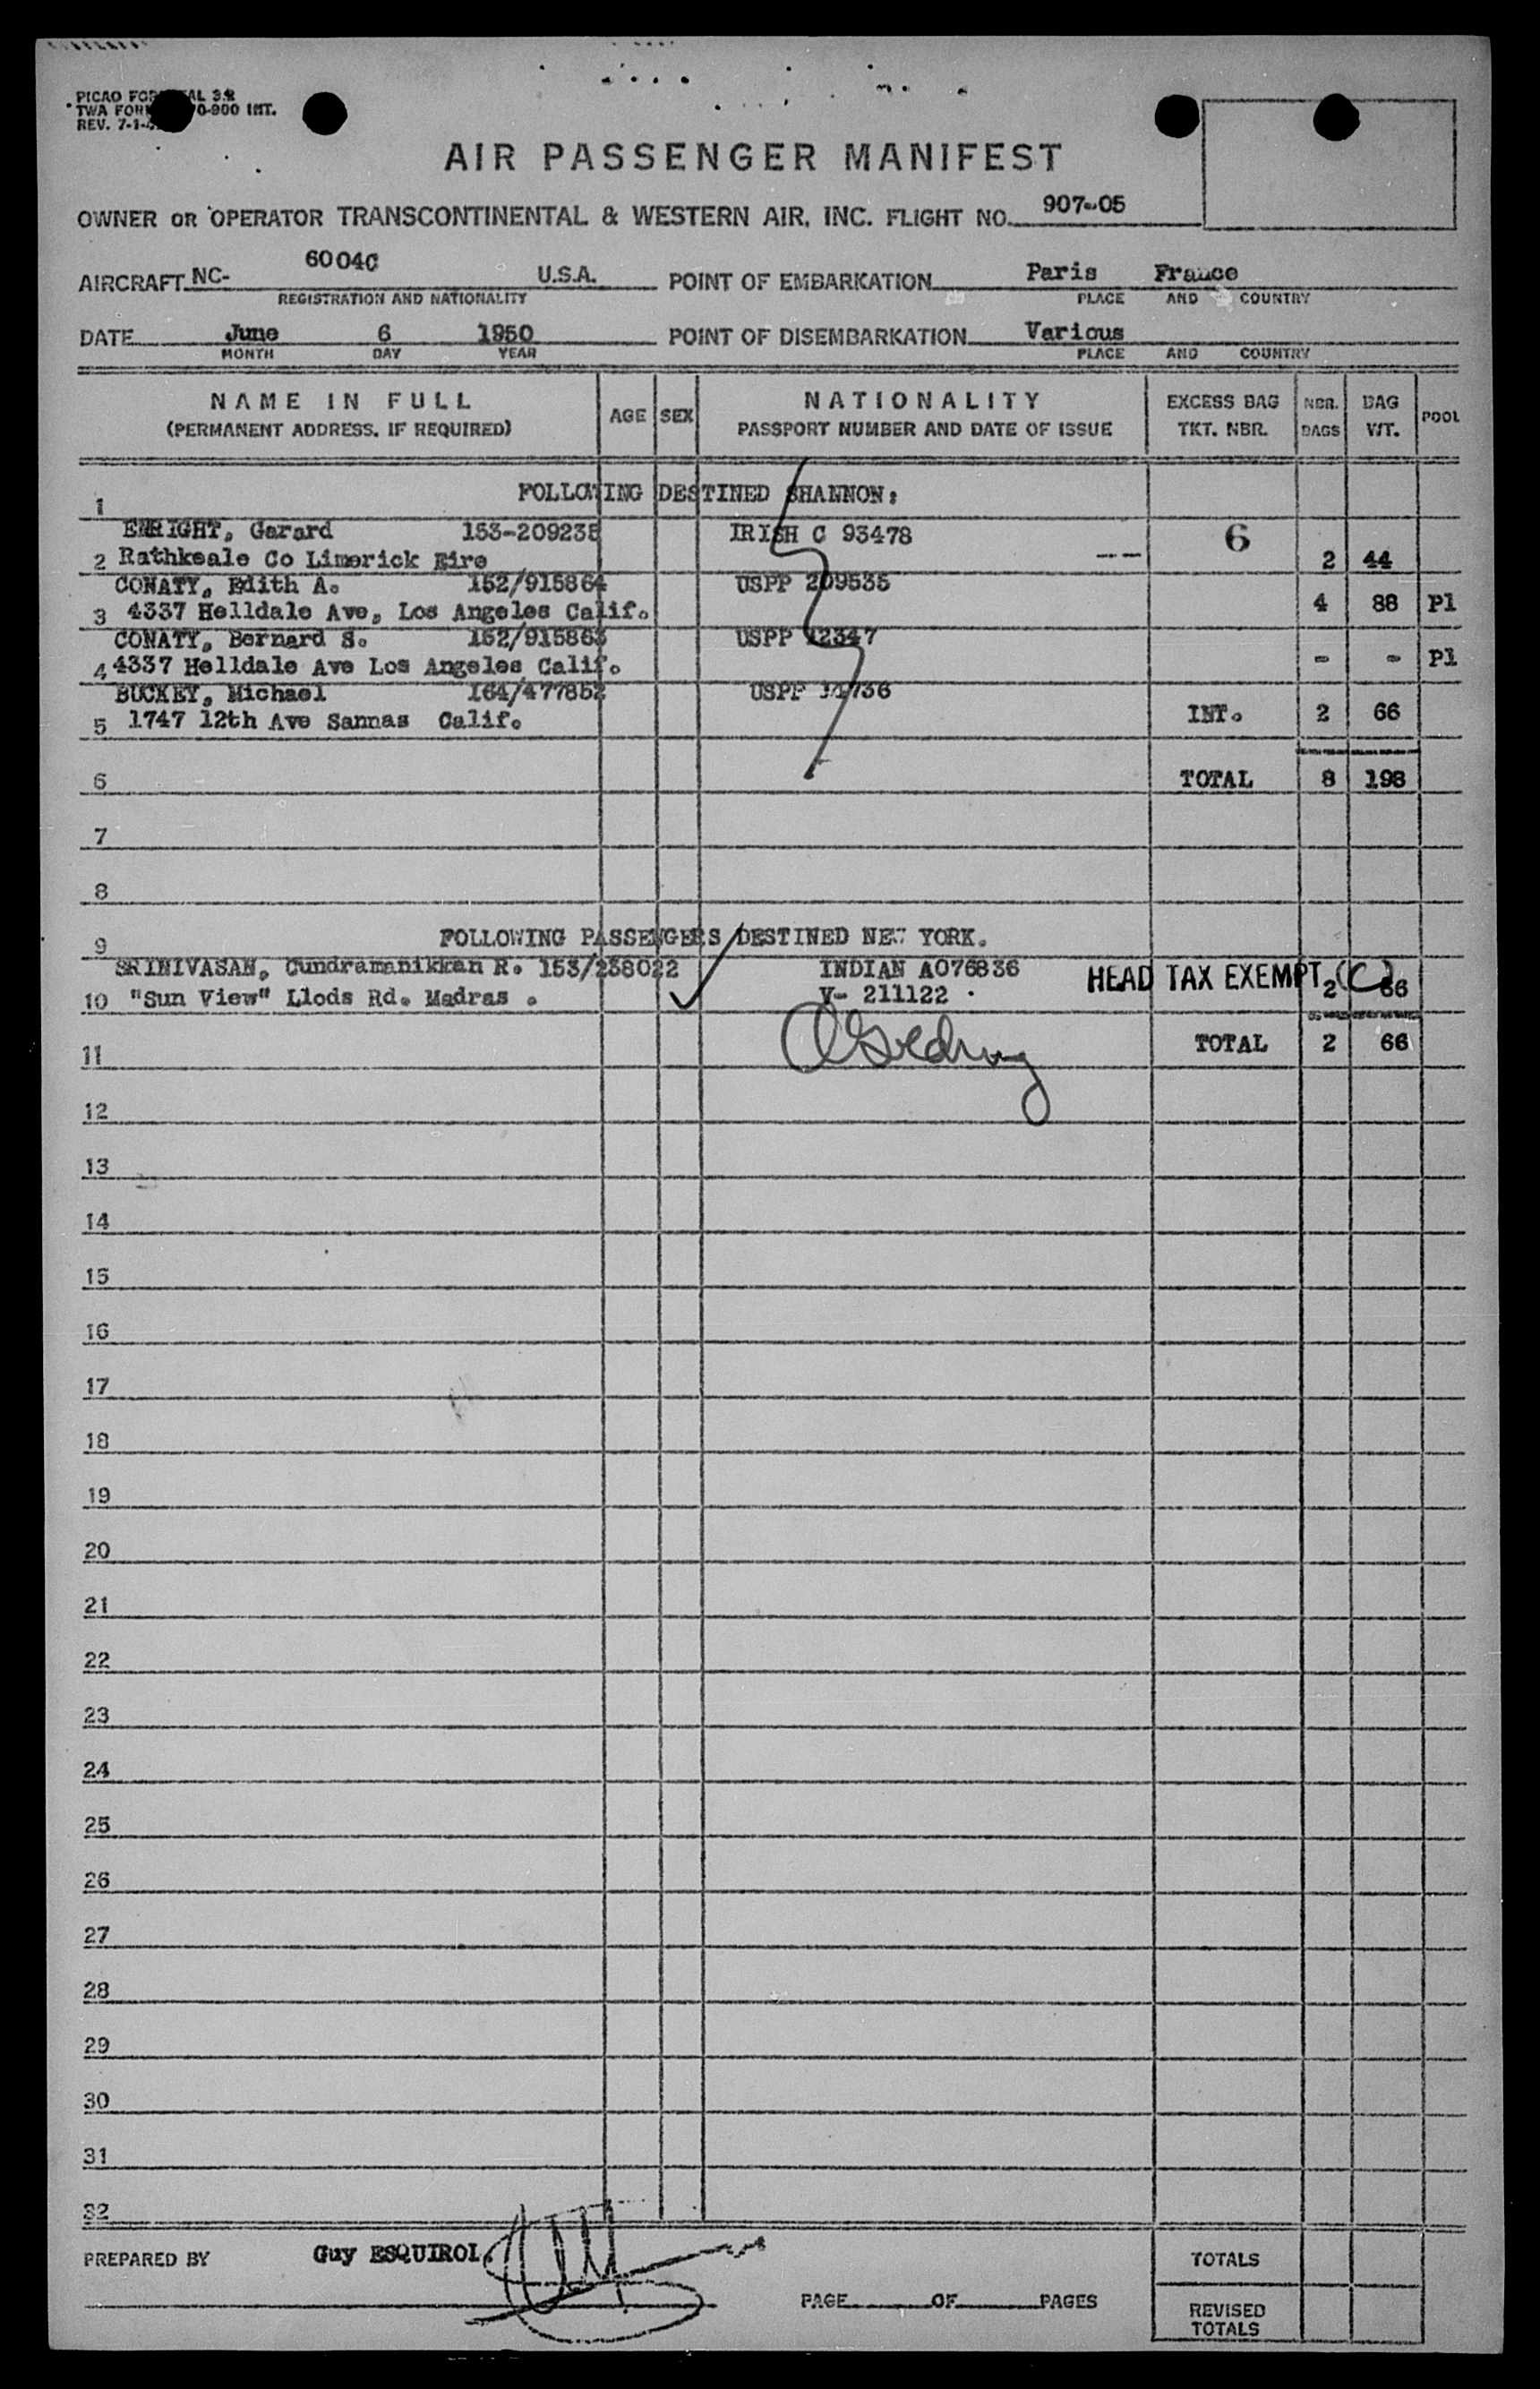 PICAO FOR AL 3.2
TWA FORM 0-900 INT.
REV. 7-1-
AIR PASSENGER MANIFEST
OWNER OR OPERATOR TRANSCONTINENTAL & WESTERN AIR, INC. FLIGHT NO. 907-05
AIRCRAFT NC- 6004C U.S.A. POINT OF EMBARKATION Paris France
REGISTRATION AND NATIONALITY PLACE AND COUNTRY
DATE June 6 1950 POINT OF DISEMBARKATION Various
MONTH DAY YEAR PLACE AND COUNTRY
NAME IN FULL AGE SEX NATIONALITY EXCESS BAG NBR. BAG POOL
(PERMANENT ADDRESS, IF REQUIRED) PASSPORT NUMBER AND DATE OF ISSUE TKT. NBR. BAGS WT.
1 FOLLOWING DESTINED SHANNON:
ENRIGHT, Garard 153-209235 IRISH C 93478 6
2 Rathkeale Co Limerick Eire -- 2 44
CONATY, Edith A. 152/915864 USPP 209535
3 4337 Helldale Ave, Los Angeles Calif. 4 88 Pl
CONATY, Bernard S. 152/915863 USPP 12347
4 4337 Helldale Ave Los Angeles Calif. - - Pl
BUCKEY, Michael 164/477852 USPP 11736
5 1747 12th Ave Sannas Calif. INT. 2 66
6 TOTAL 8 198
7
8
9 FOLLOWING PASSENGERS DESTINED NEW YORK.
SRINIVASAN, Cundramanikkan R. 153/238022 INDIAN A076836
10 "Sun View" Llods Rd. Madras . V- 211122 . HEAD TAX EXEMPT (C) 2 66
11 TOTAL 2 66
12
13
14
15
16
17
18
19
20
21
22
23
24
25
26
27
28
29
30
31
32
PREPARED BY Guy ESQUIROL. TOTALS
PAGE OF PAGES
REVISED
TOTALS